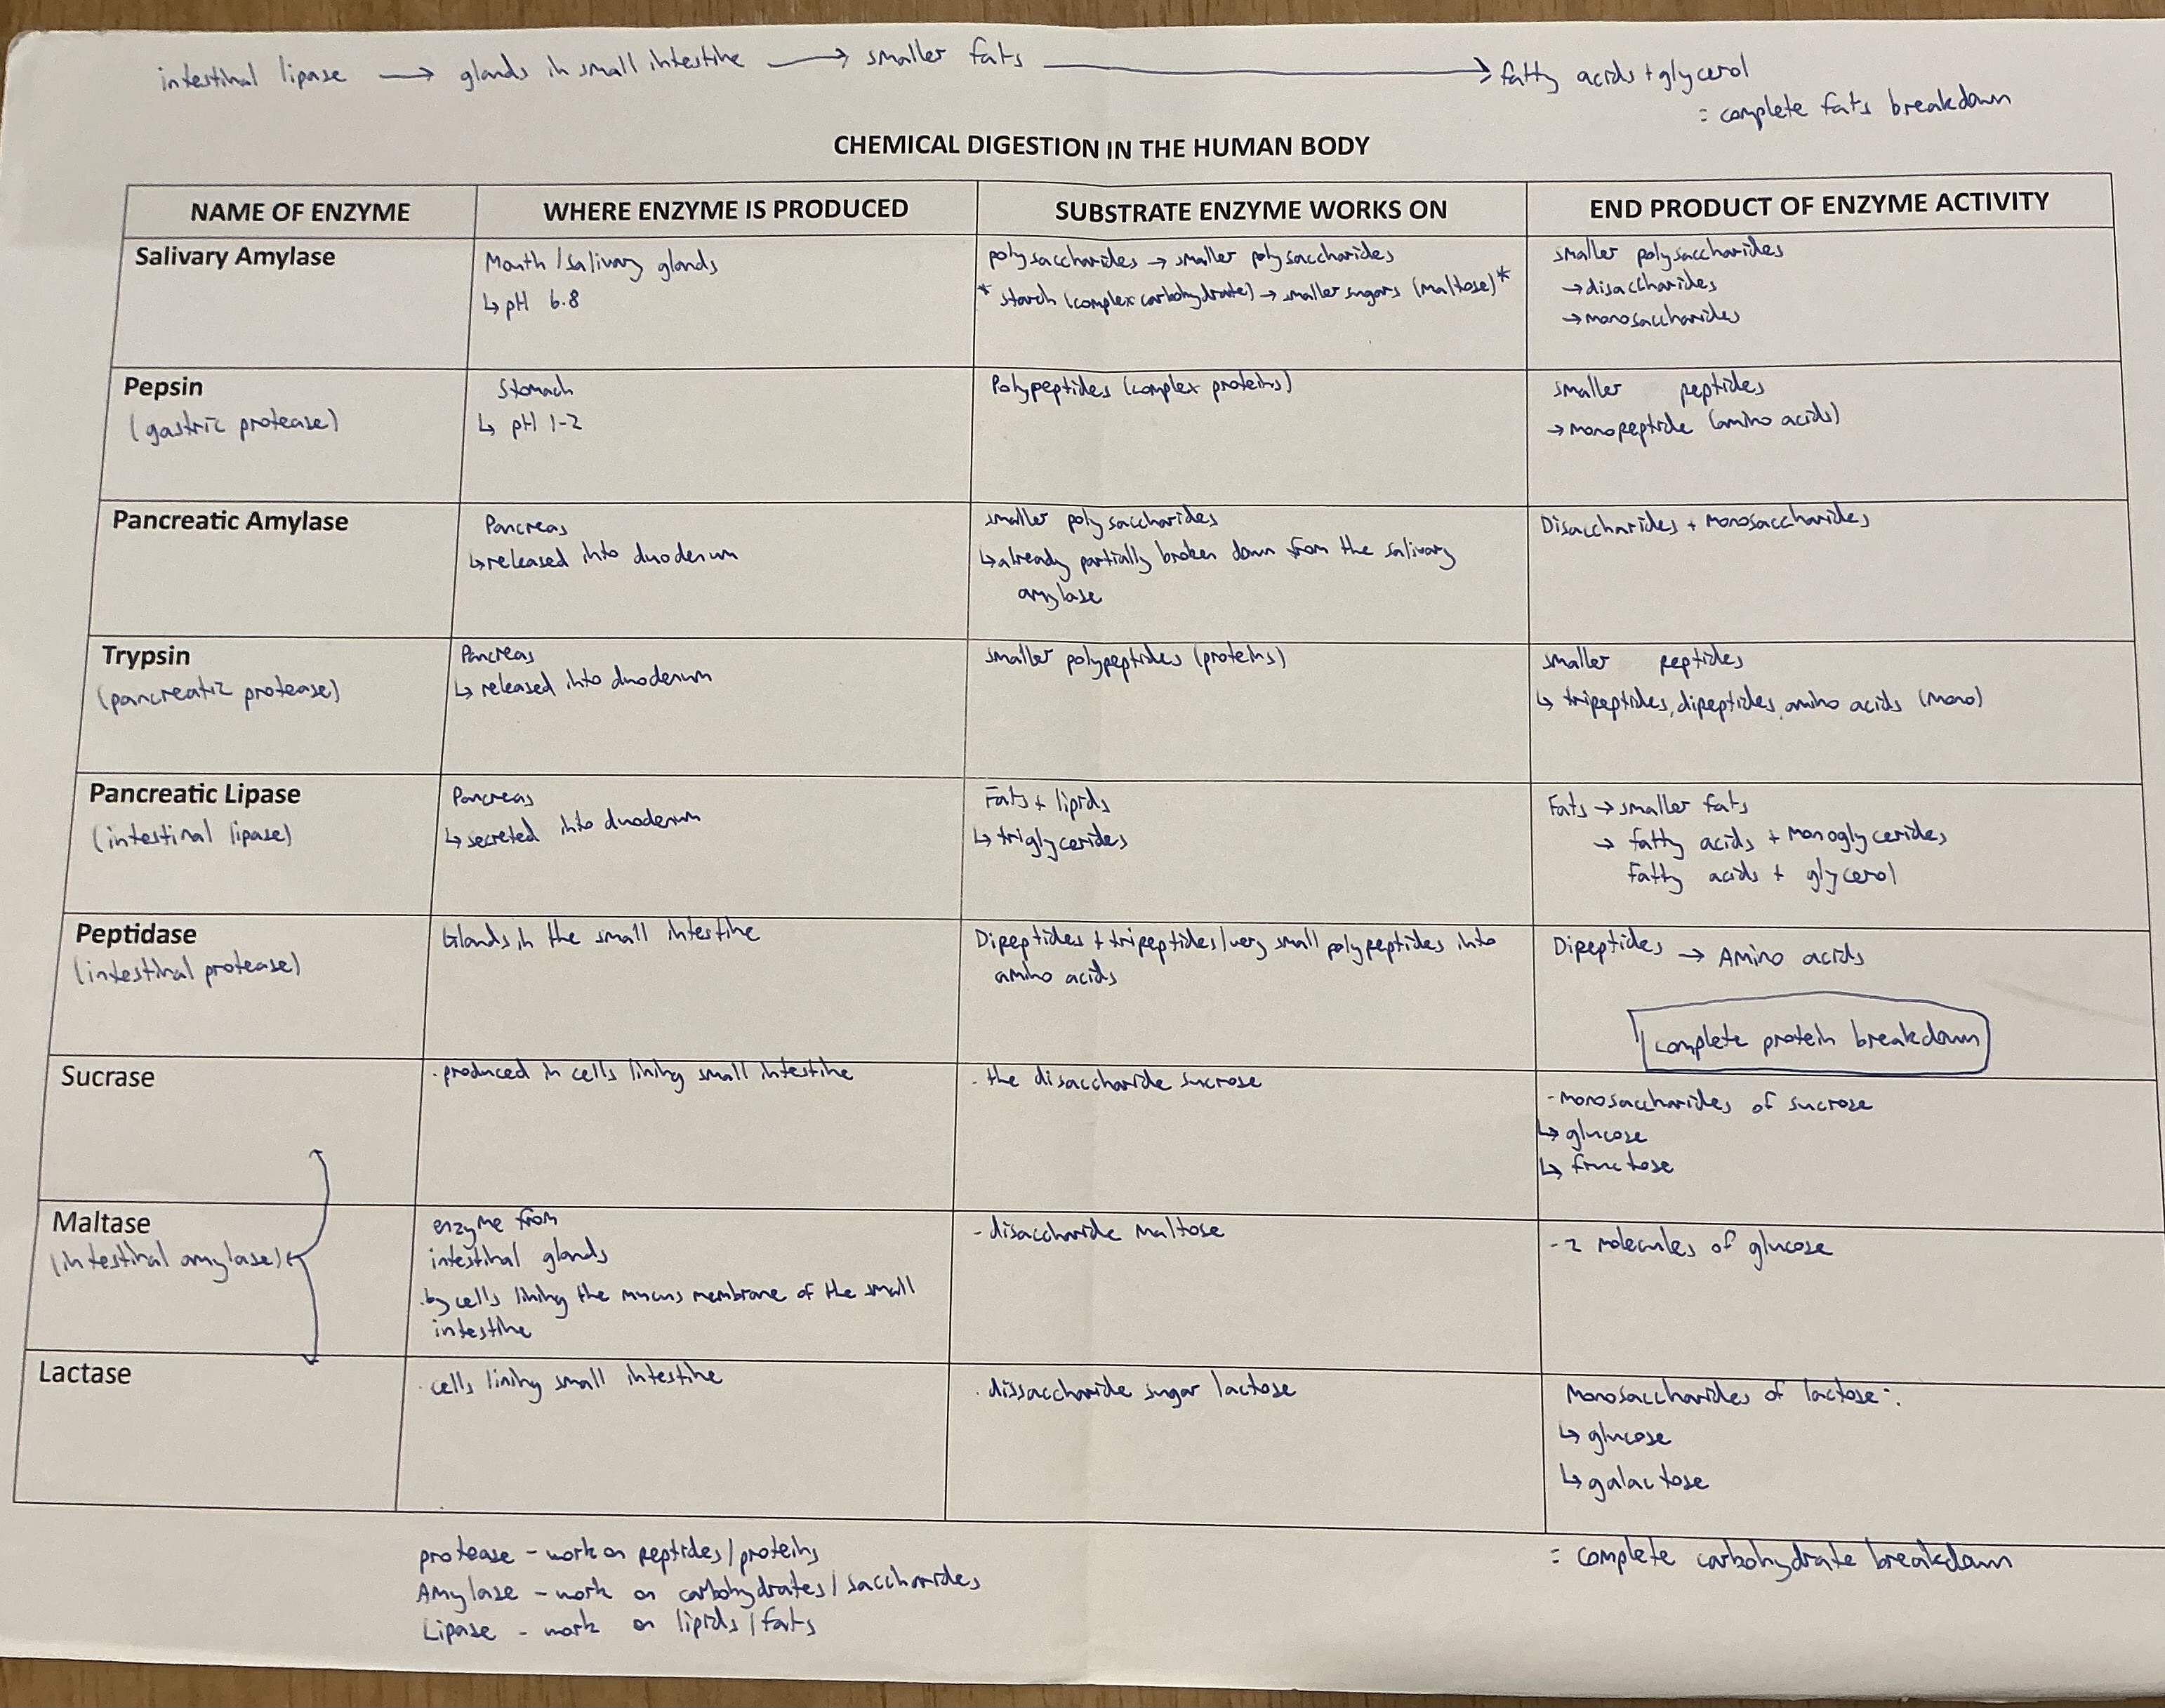 intestinal lipase → glands in small intestine → smaller fats → fatty acids + glycerol
= complete fats breakdown
CHEMICAL DIGESTION IN THE HUMAN BODY
NAME OF ENZYME
WHERE ENZYME IS PRODUCED
SUBSTRATE ENZYME WORKS ON
END PRODUCT OF ENZYME ACTIVITY
Salivary Amylase
Mouth/salivary glands
↳ pH 6.8
polysaccharides → smaller polysaccharides
* starch (complex carbohydrate) → smaller sugars (maltose) *
smaller polysaccharides
→ disaccharides
→ monosaccharides
Pepsin
(gastric protease)
Stomach
↳ pH 1-2
Polypeptides (complex proteins)
smaller peptides
→ monopeptide (amino acids)
Pancreatic Amylase
Pancreas
↳ released into duodenum
smaller polysaccharides
↳ already partially broken down from the salivary
amylase
Disaccharides + Monosaccharides
Trypsin
(pancreatic protease)
Pancreas
↳ released into duodenum
smaller polypeptides (proteins)
smaller peptides
↳ tripeptides, dipeptides, amino acids (mono)
Pancreatic Lipase
(intestinal lipase)
Pancreas
↳ secreted into duodenum
Fats + lipids
↳ triglycerides
Fats → smaller fats
→ fatty acids + monoglycerides
Fatty acids + glycerol
Peptidase
(intestinal protease)
Glands in the small intestine
Dipeptides + tripeptides/very small polypeptides into
amino acids
Dipeptides → Amino acids
complete protein breakdown
Sucrase
· produced in cells lining small intestine
- the disaccharide sucrose
- monosaccharides of sucrose
↳ glucose
↳ fructose
Maltase
(intestinal amylase)
enzyme from
intestinal glands
· by cells lining the mucus membrane of the small
intestine
- disaccharide maltose
- 2 molecules of glucose
Lactase
· cells lining small intestine
· dissaccharide sugar lactose
Monosaccharides of lactose:
↳ glucose
↳ galactose
protease - work on peptides/proteins
Amylase - work on carbohydrates/saccharides
Lipase - work on lipids/fats
= complete carbohydrate breakdown